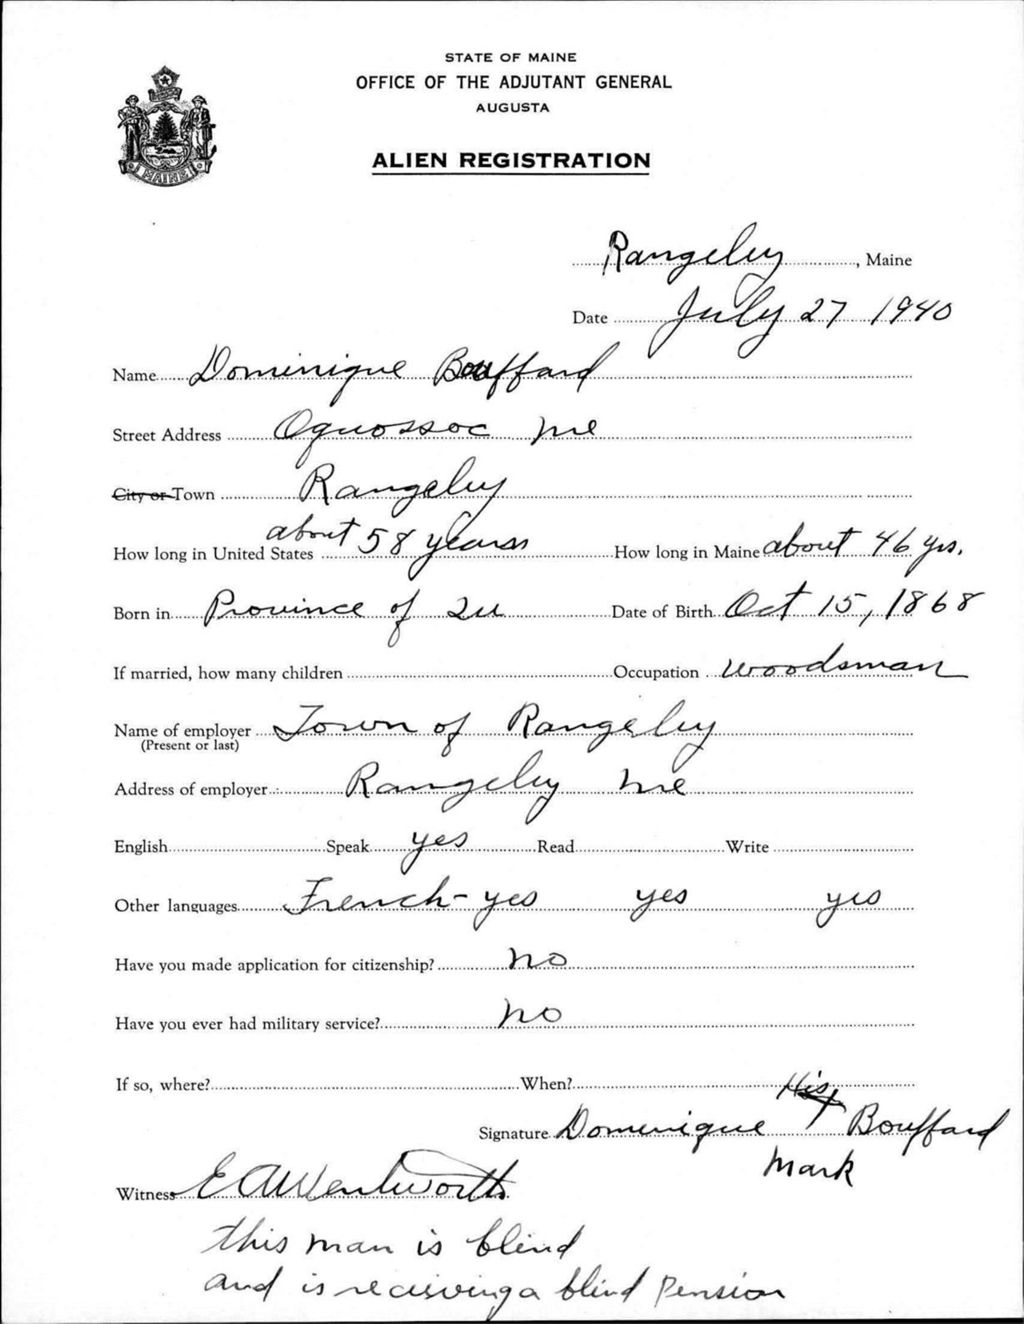 STATE OF MAINE
OFFICE OF THE ADJUTANT GENERAL
AUGUSTA
ALIEN REGISTRATION
MAINE
Rangeley, Maine
Date July 27 1940
Name Dominique Bouffard
Street Address Oquossoc Me
City or Town Rangeley
How long in United States about 58 years How long in Maine about 46 yrs.
Born in Province of Qu Date of Birth Oct 15, 1868
If married, how many children Occupation Woodsman
Name of employer Town of Rangeley
(Present or last)
Address of employer Rangeley Me
English Speak yes Read Write
Other languages French - yes yes yes
Have you made application for citizenship? No
Have you ever had military service? No
If so, where? When?
His
Signature Dominique X Bouffard
Mark
Witness E A Wentworth
this man is blind
and is receiving a blind Pension